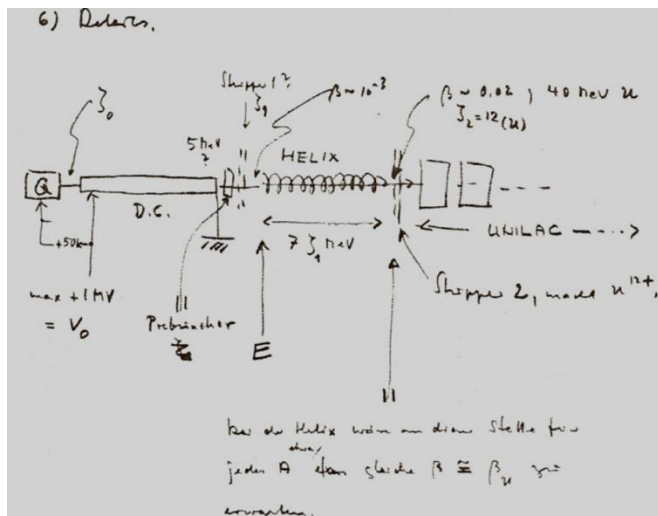 6) Details.
Stripper 1?
ζ₀
ζ₁
β ~ 10⁻³
β ~ 0.02 ; 40 MeV u
ζ₂ = 12 (u)
5 MeV
?
HELIX
Q
D.C.
+50kV
7 ζ₁ MeV
UNILAC
max +1 MV
= V₀
Prebuncher
E
A
Stripper 2, macht u¹²⁺
bei der Helix wäre an dieser Stelle für
etwa
jedes A gleiche β ≅ βᵤ zu
erwarten.